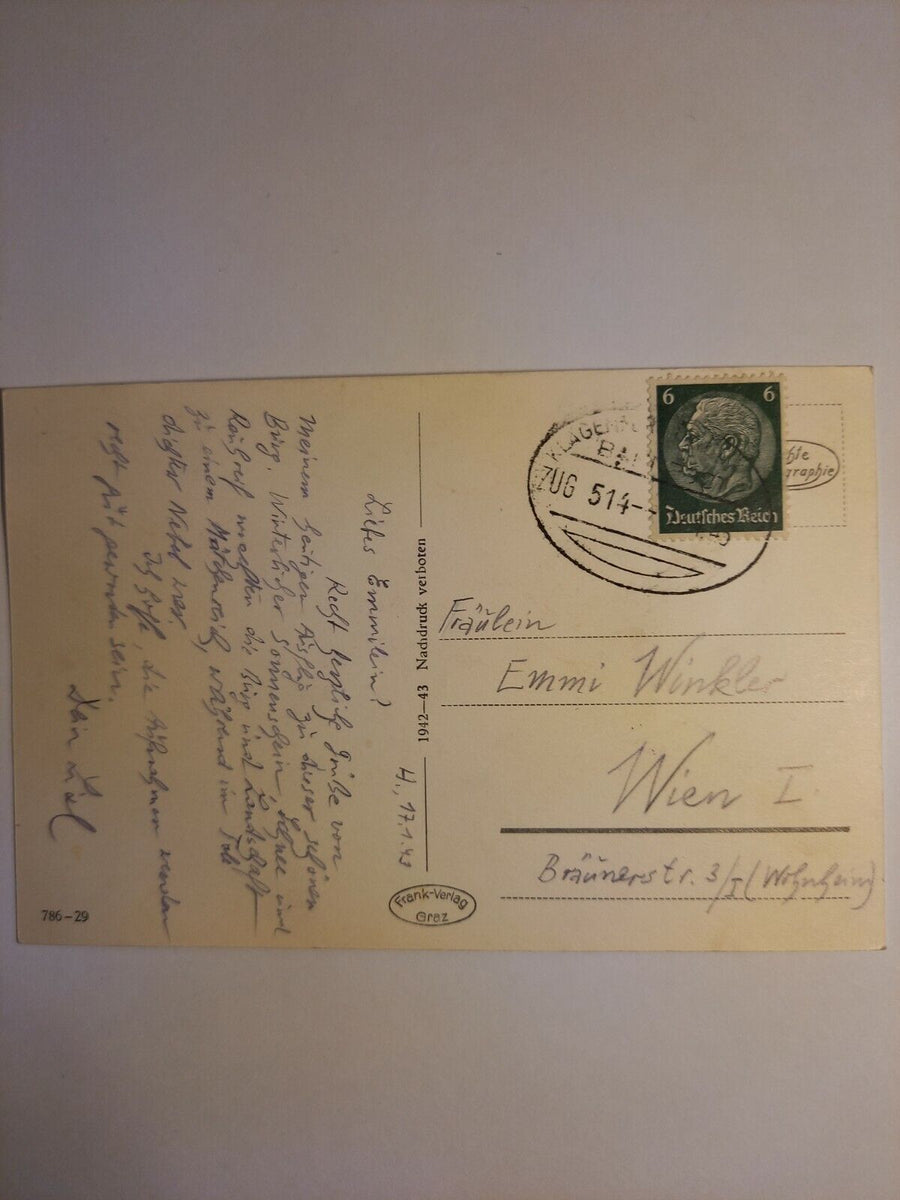 H., 17.1.43
Liebes Emmilein!
Recht herzliche Grüße von
meinem heutigen Ausflug zu dieser schönen
Burg. Winterlicher Sonnenschein, Schnee und
Rauhreif machten die Burg und Landschaft
zu einem Märchenreich, während im Tale
dichter Nebel war.
Ich hoffe, die Aufnahmen werden
recht gut geworden sein.
Dein
786-29
1942-43 Nachdruck verboten
Frank-Verlag
Graz
ZUG 514
6 6
Deutsches Reich
Fräulein
Emmi Winkler
Wien I.
Bräunerstr. 3/I (Wohnheim)